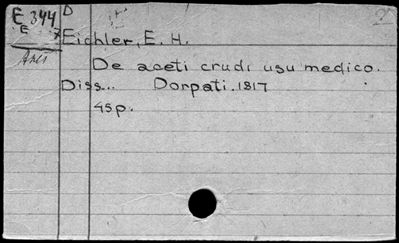 E 344 D
E
Eichler, E. H.
De aceti crudi usu medico.
Diss... Dorpati. 1817
45p.